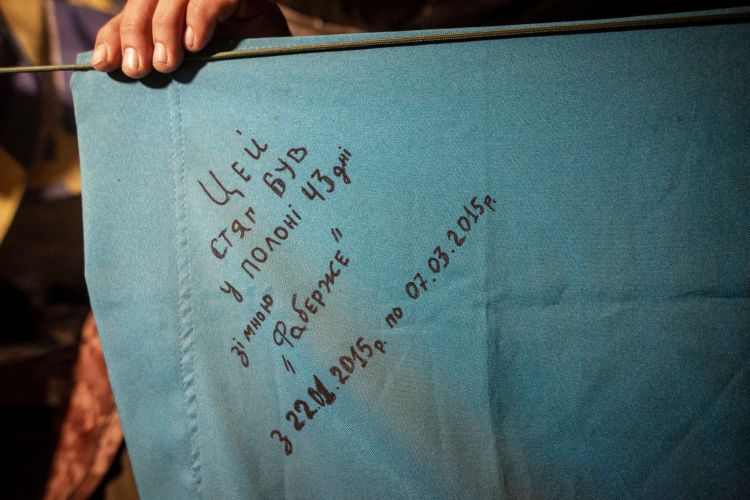 ЦЕЙ
СТЯГ БУВ
У ПОЛОНІ 43 дні
зі мною
"Фаберже"
З 22.01.2015р. по 07.03.2015р.